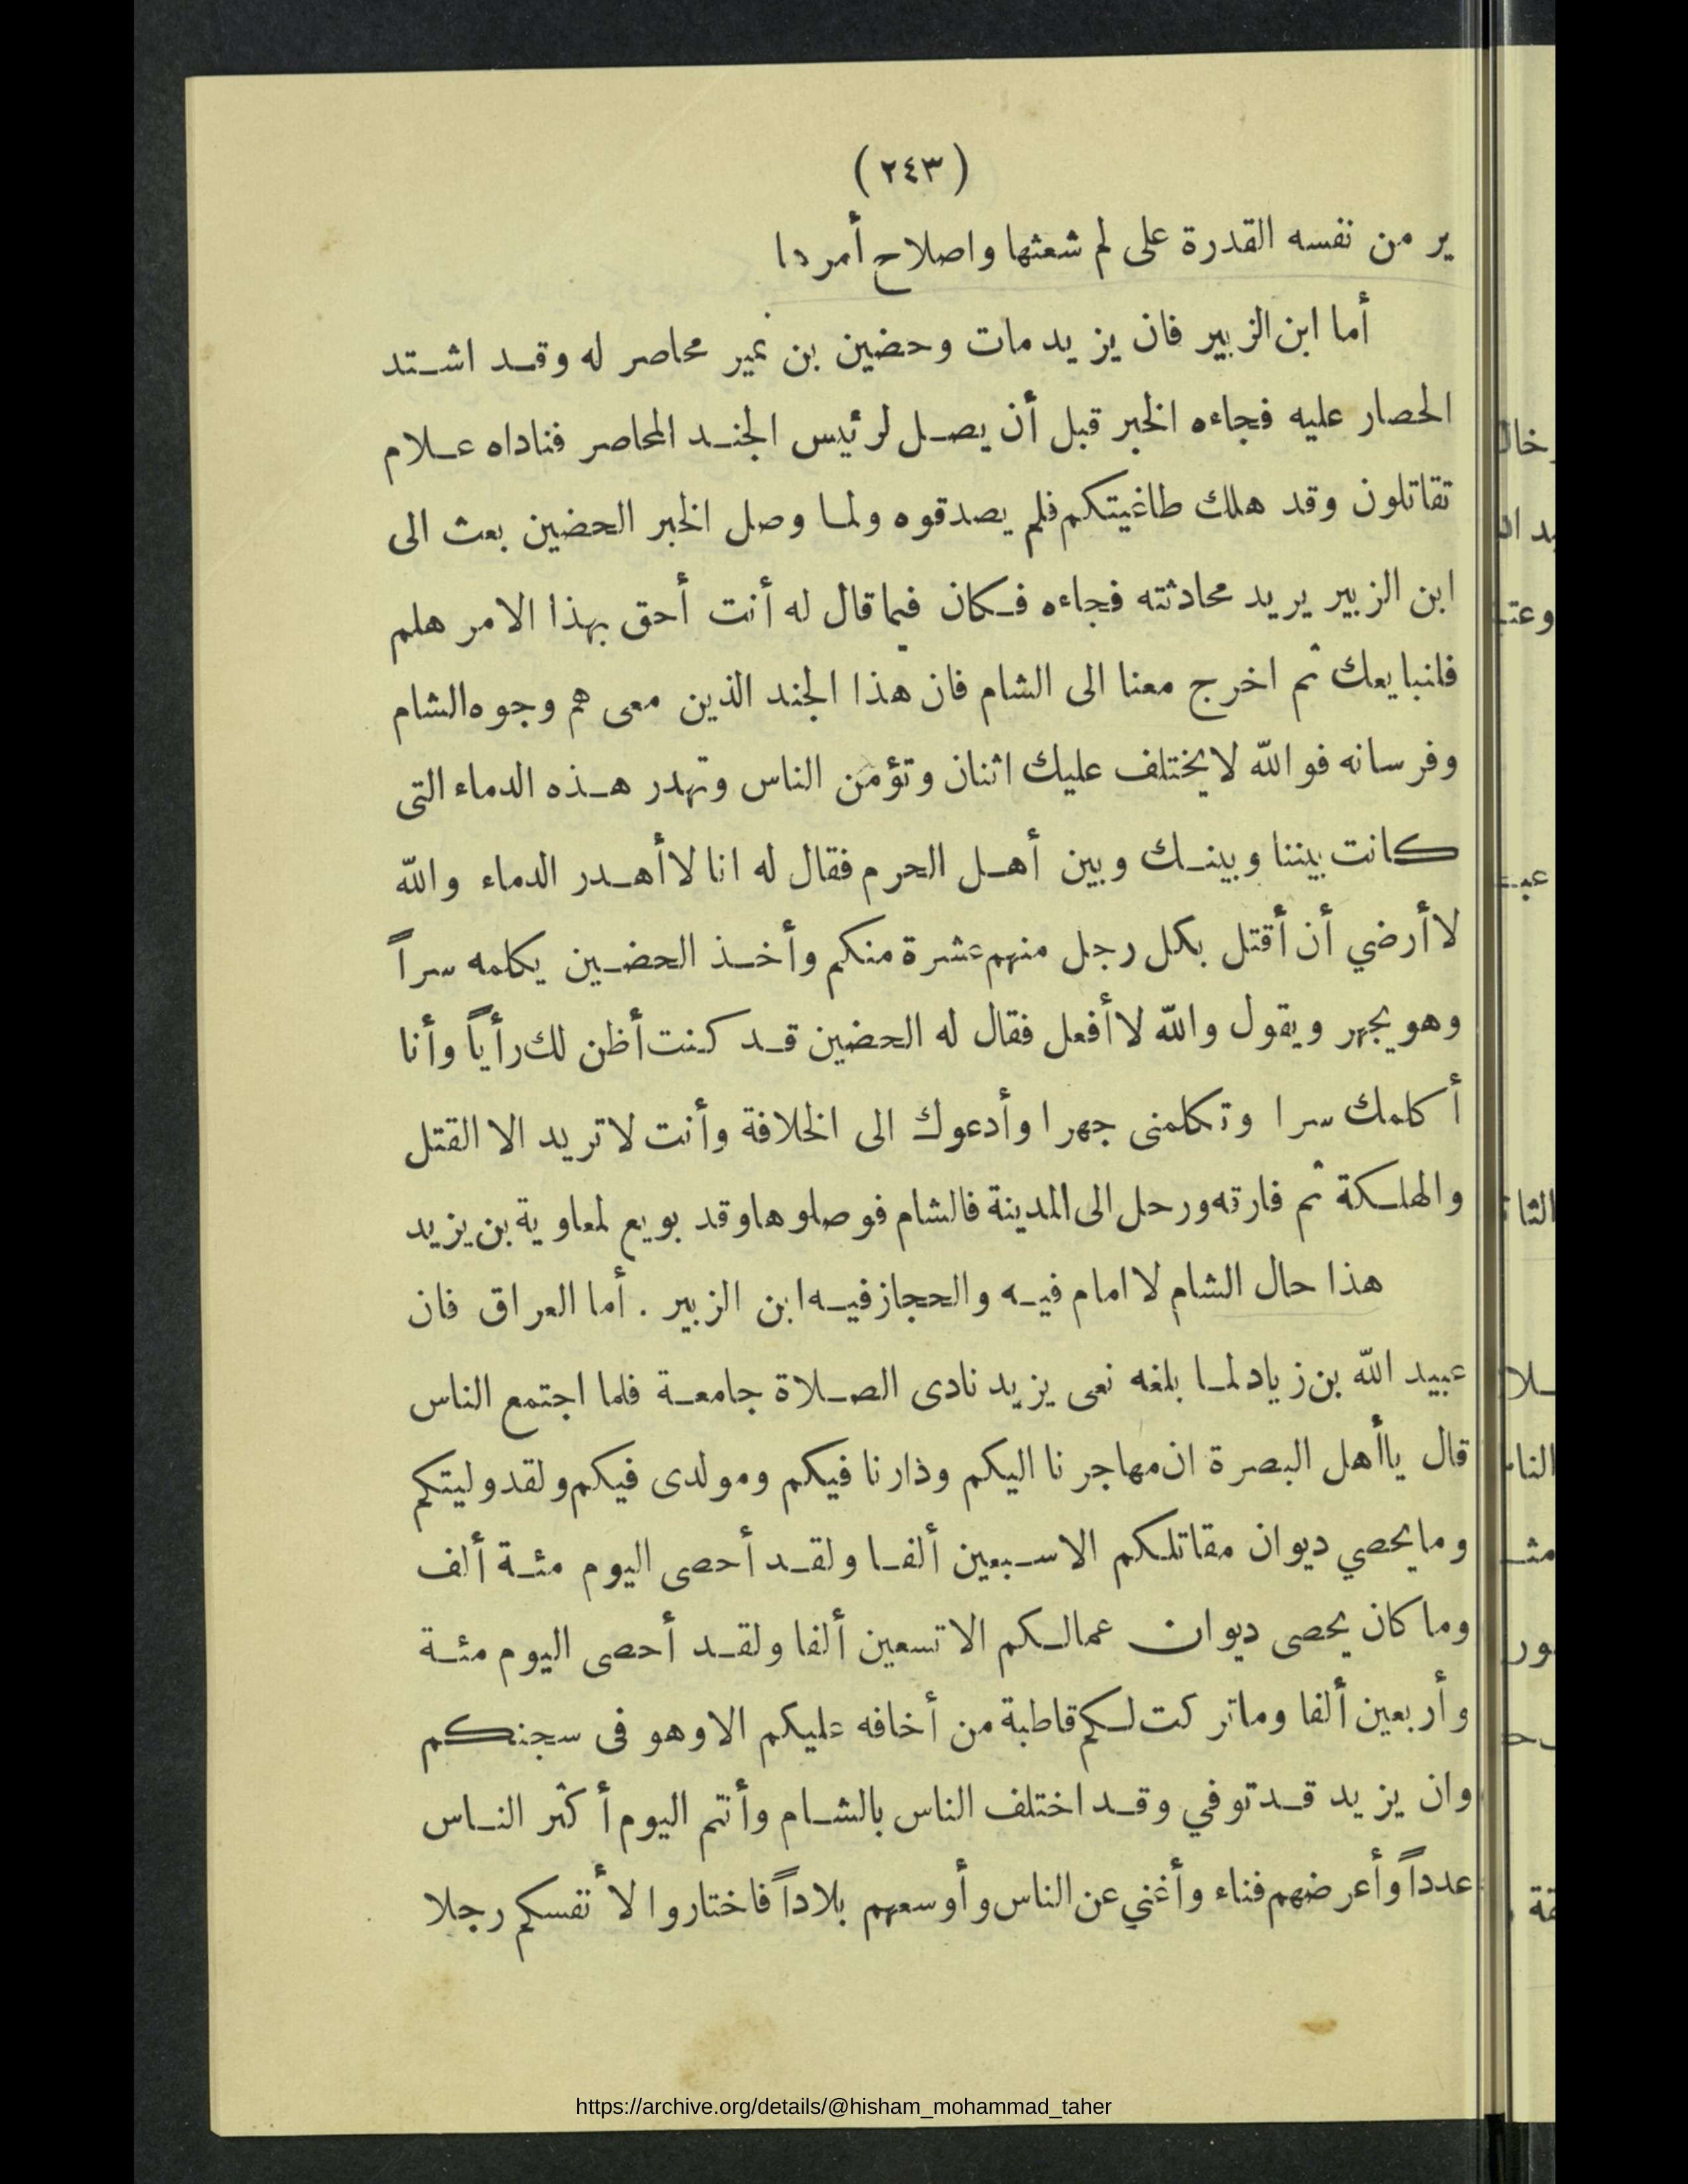 (٢٤٣)
ير من نفسه القدرة على لم شعثها واصلاح أمر دا
أما ابن الزبير فان يزيد مات وحضين بن نمير محاصر له وقد اشتد
الحصار عليه فجاءه الخبر قبل أن يصل لرئيس الجند المحاصر فناداه علام
تقاتلون وقد هلك طاغيتكم فلم يصدقوه ولما وصل الخبر الحضين بعث الى
ابن الزبير يريد محادثته فجاءه فكان فيما قال له أنت أحق بهذا الامر هلم
فلنبايعك ثم اخرج معنا الى الشام فان هذا الجند الذين معى هم وجوه الشام
وفرسانه فوالله لا يختلف عليك اثنان وتؤمن الناس وتهدر هذه الدماء التى
كانت بيننا وبينك وبين أهل الحرم فقال له انا لا أهدر الدماء والله
لا أرضي أن أقتل بكل رجل منهم عشرة منكم وأخذ الحضين يكلمه سراً
وهو يجهر ويقول والله لا أفعل فقال له الحضين قد كنت أظن لك رأياً وأنا
أكلمك سرا وتكلمنى جهرا وأدعوك الى الخلافة وأنت لا تريد الا القتل
والهلكة ثم فارته ورحل الى المدينة فالشام فوصلوها وقد بويع لمعاوية بن يزيد
هذا حال الشام لا امام فيه والحجاز فيه ابن الزبير . أما العراق فان
عبيد الله بن زياد لما بلغه نعى يزيد نادى الصلاة جامعة فلما اجتمع الناس
قال يا أهل البصرة ان مهاجرنا اليكم وذارنا فيكم ومولدى فيكم ولقد وليتكم
وما يحصي ديوان مقاتلكم الا سبعين ألفا ولقد أحصى اليوم مئة ألف
وما كان يحصى ديوان عمالكم الا تسعين ألفا ولقد أحصى اليوم مئة
وأربعين ألفا وما تركت لكم قاطبة من أخافه عليكم الا وهو فى سجنكم
وان يزيد قد توفي وقد اختلف الناس بالشام وأنتم اليوم أكثر الناس
عدداً وأعرضهم فناء وأغني عن الناس وأوسعهم بلاداً فاختاروا لأنفسكم رجلا
https://archive.org/details/@hisham_mohammad_taher